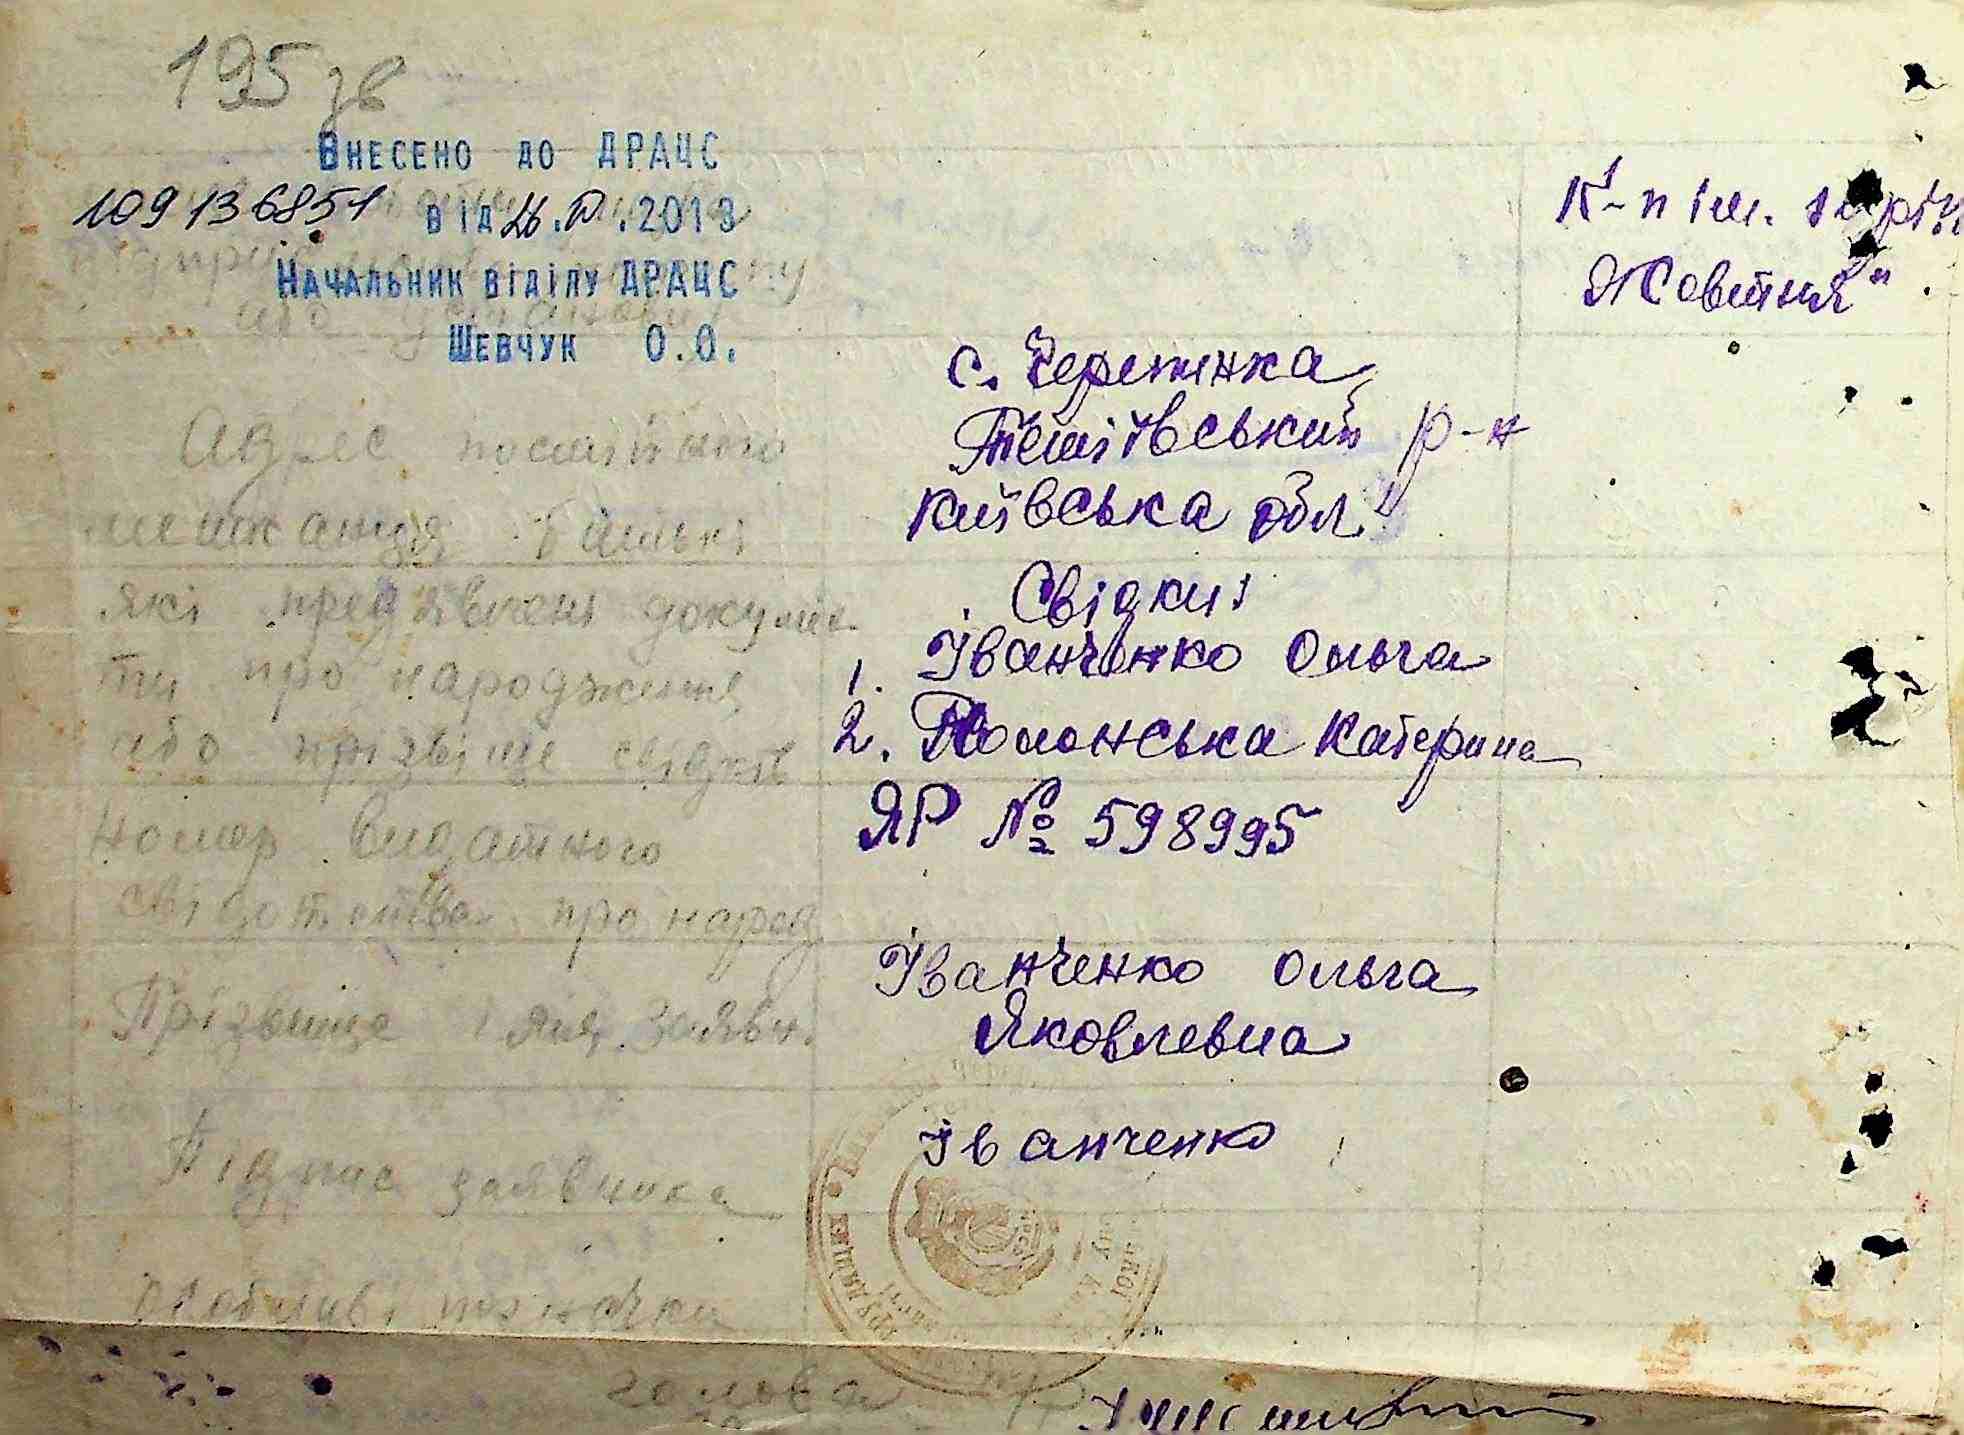 195 зв
Внесено до ДРАЦС
109136851 від 26. .2013
Начальник відділу ДРАЦС
або установи
Шевчук О.О.
К-п ім. річ
Жовтня"
с. Черепинка
Тетіївський р-н
Київська обл.
Адрес постійного
мешкання батьків
Які пред'явлені докуме
ти про народження
або прізвіще свідків
Свідки:
1. Іванченко Ольга
2. Катерина
Номер виданного
свідотства про народ
ЯР № 598995
Прізвище і імя заявн.
Іванченко Ольга
Яковлевна
Підпис заявника
Іванченко
Особливі позначки
голова